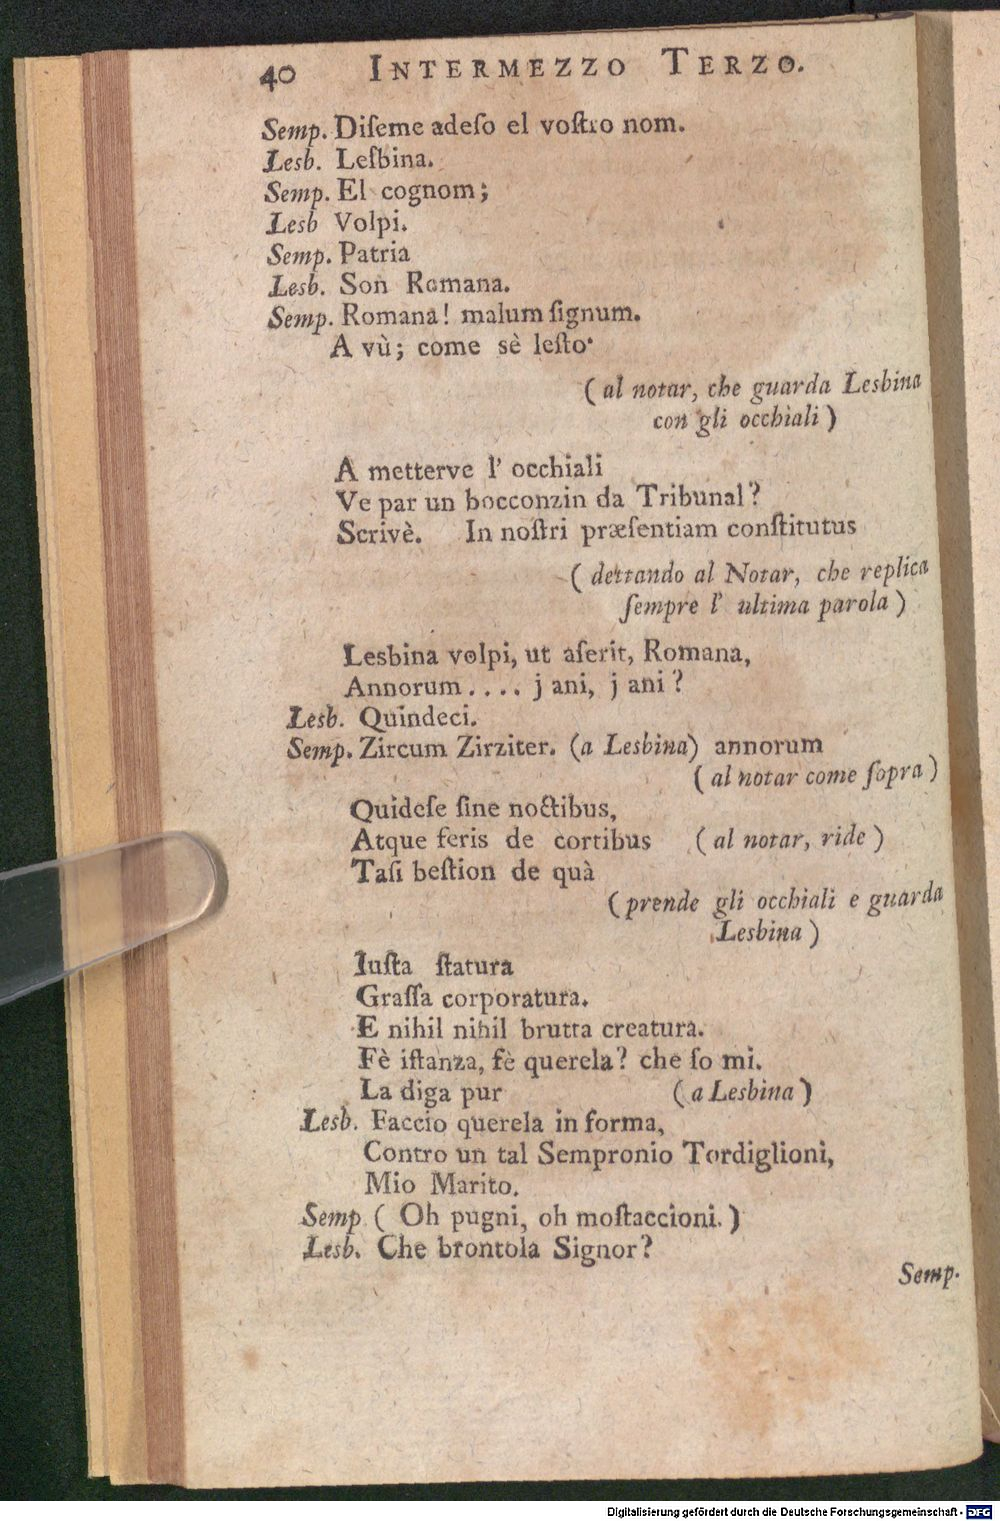 40 INTERMEZZO TERZO.
Semp. Diſeme adeſo el voſtro nom.
Lesb. Leſbina.
Semp. El cognom;
Lesb Volpi.
Semp. Patria
Lesb. Son Romana.
Semp. Romana! malum ſignum.
A vù; come sè leſto·
(al notar, che guarda Lesbina
con gli occhiali)
A metterve l' occhiali
Ve par un bocconzin da Tribunal?
Scrivè. In noſtri præſentiam conſtitutus
(dettando al Notar, che replica
ſempre l' ultima parola)
Lesbina volpi, ut aſerit, Romana,
Annorum.... j ani, j ani?
Lesb. Quindeci.
Semp. Zircum Zirziter. (a Lesbina) annorum
(al notar come ſopra)
Quideſe ſine noctibus,
Atque feris de cortibus (al notar, ride)
Taſi beſtion de quà
(prende gli occhiali e guarda
Lesbina)
Iuſta ſtatura
Graſſa corporatura.
E nihil nihil brutta creatura.
Fè iſtanza, fè querela? che ſo mi.
La diga pur (a Lesbina)
Lesb. Faccio querela in forma,
Contro un tal Sempronio Tordiglioni,
Mio Marito.
Semp (Oh pugni, oh moſtaccioni.)
Lesb. Che brontola Signor?
Semp.
Digitalisierung gefördert durch die Deutsche Forschungsgemeinschaft - DFG